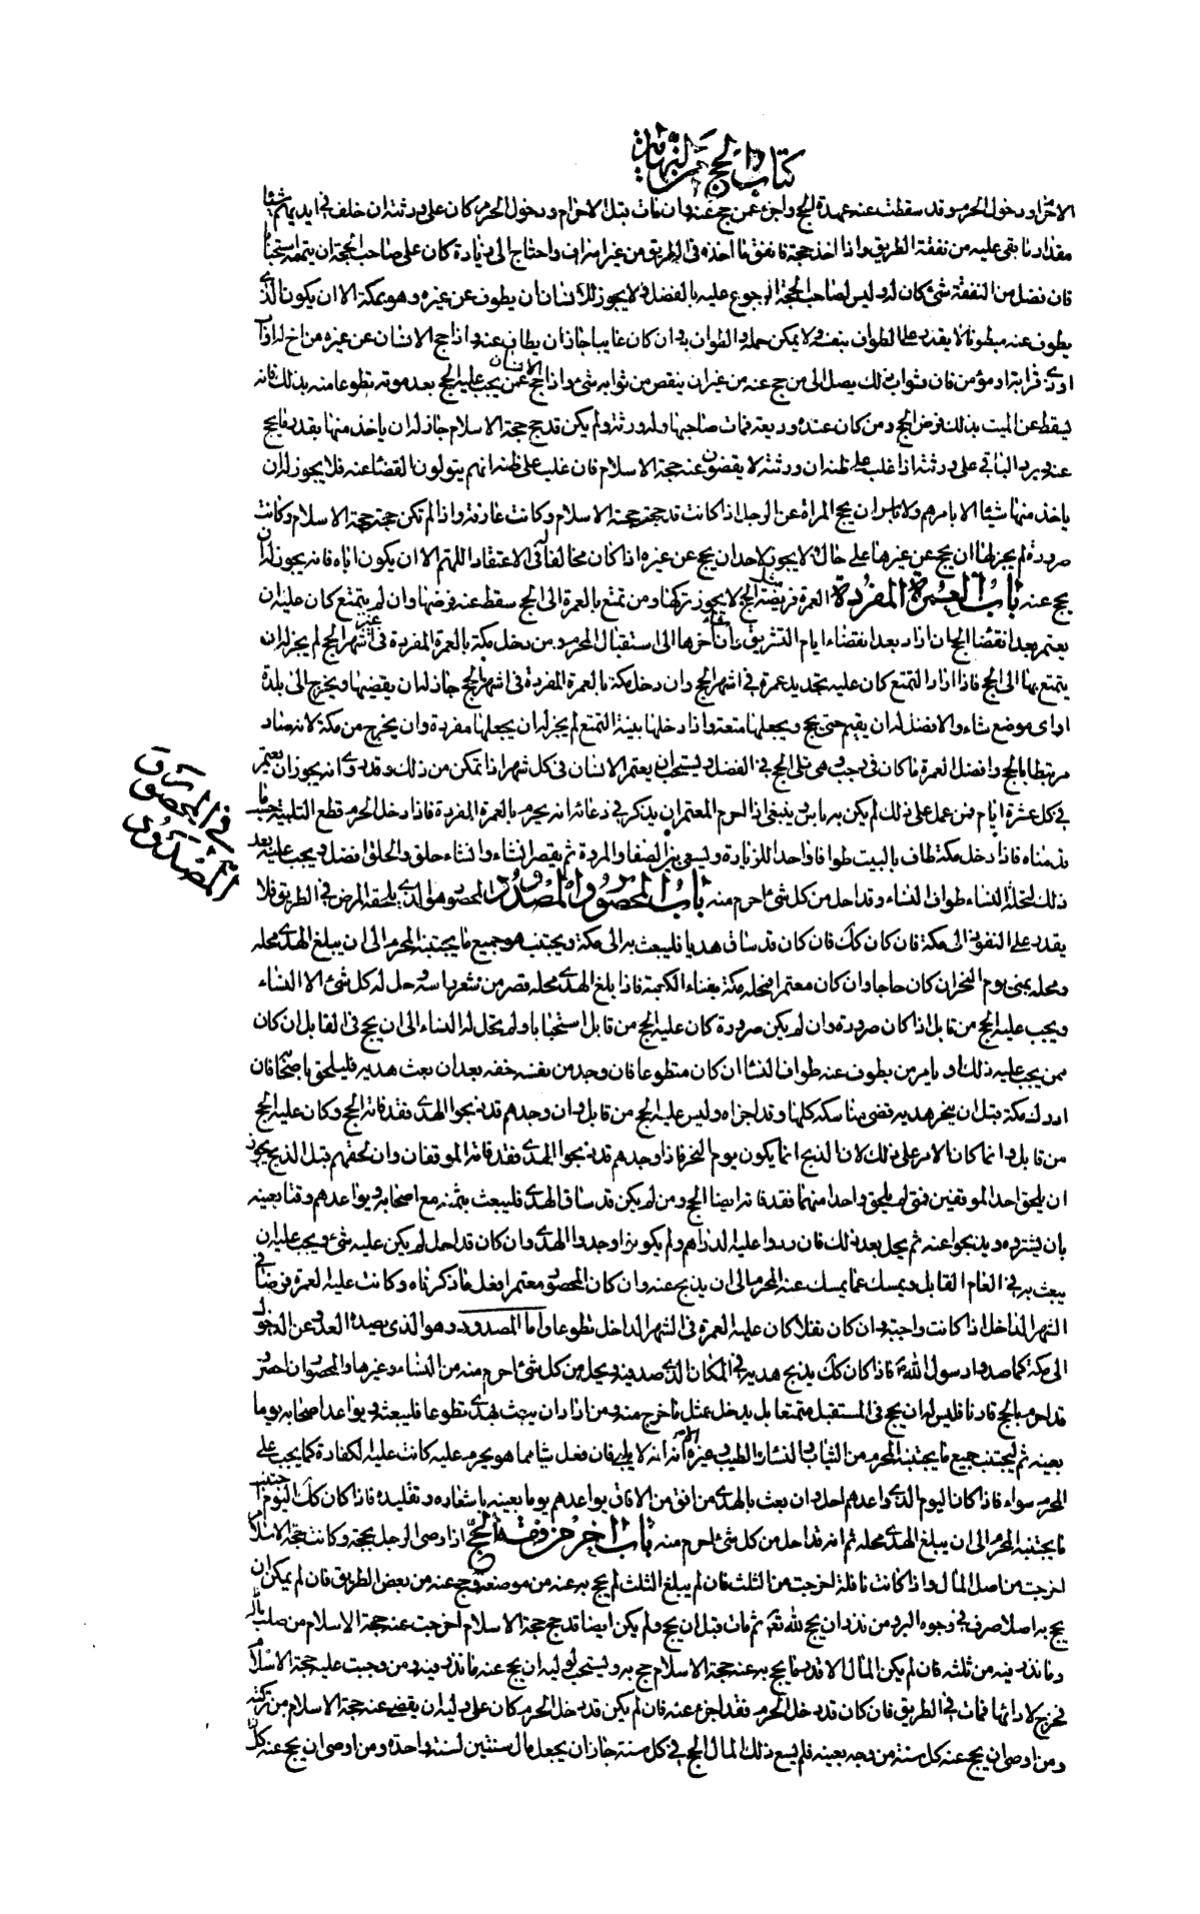 كتاب الحج من النهاية
الاحرام ودخول الحرم وقد سقطت عنه عهدة الحج واجزء عمن حج عنه وان مات قبل الاحرام ودخول الحرم كان على ورثته ان خلف في ايديهم شيئا
مقدار ما بقى عليه من نفقة الطريق واذا اخذ حجة فانفق ما اخذه في الطريق من غير اسراف واحتاج الى زيادة كان على صاحب الحجة ان يتممه استحبابا
فان فضل من النفقة شئ كان له وليس لصاحب الحجة الرجوع عليه بالفضل ولا يجوز للانسان ان يطوف عن غيره وهو بمكة الا ان يكون الذي
يطوف عنه مبطونا لا يقدر على الطواف بنفسه ولا يمكن حمله والطواف به وان كان غايبا جاز ان يطاف عنه واذا حج الانسان عن غيره من اخ له او اب
او ذي قرابة او مؤمن فان ثواب ذلك يصل الى من حج عنه من غير ان ينقص من ثوابه شئ واذا حج الانسان عمن يجب عليه الحج بعد موته تطوعا منه بذلك فانه
يسقط عن الميت بذلك فرض الحج ومن كان عنده وديعة فمات صاحبها وله ورثة ولم يكن قد حج حجة الاسلام جاز له ان ياخذ منها بقدر ما يحج
عنه ويرد الباقي على ورثته اذا غلب على ظنه ان ورثته لا يقضون عنه حجة الاسلام فان غلب على ظنه انهم يتولون القضاء عنه فلا يجوز له ان
ياخذ منها شيئا الا بامرهم ولا باس ان يحج المراة عن الرجل اذا كانت قد حجت حجة الاسلام وكانت عارفة واذا لم تكن حجت حجة الاسلام وكانت
صرورة لم يجز لها ان يحج عن غيرها على حال ولا يجوز لاحد ان يحج عن غيره اذا كان مخالفا له في الاعتقاد اللهم الا ان يكون اباه فانه يجوز له ان
يحج عنه باب العمرة المفردة العمرة فريضة مثل الحج لا يجوز تركها ومن تمتع بالعمرة الى الحج سقط عنه فرضها وان لم يتمتع كان عليه ان
يعتمر بعد انقضاء الحج ان اراد بعد انقضاء ايام التشريق وان شاء اخرها الى استقبال المحرم ومن دخل مكة بالعمرة المفردة في غير اشهر الحج لم يجز له ان
يتمتع بها الى الحج فاذا اراد التمتع كان عليه تجديد عمرة في اشهر الحج وان دخل مكة بالعمرة المفردة في اشهر الحج جاز له ان يقضيها ويخرج الى بلده
او اى موضع شاء والافضل له ان يقيم حتى يحج ويجعلها متعة واذا دخلها بنية التمتع لم يجز له ان يجعلها مفردة وان يخرج من مكة لانه صار
مرتبطا بالحج وافضل العمرة ما كان في رجب وهى تلى الحج في الفضل ويستحب ان يعتمر الانسان في كل شهر اذا تمكن من ذلك وقد روى انه يجوز ان يعتمر
في كل عشرة ايام فمن عمل على ذلك لم يكن به باس وينبغي اذا احرم المعتمر ان يذكر في دعائه انه يحرم بالعمرة المفردة فاذا دخل الحرم قطع التلبية حسب ما
قدمناه فاذا دخل مكة طاف بالبيت طوافا واحدا للزيارة ويسعى بين الصفا والمروة ثم يقصر ان شاء وان شاء حلق والحلق افضل ويجب عليه بعد
ذلك لتحلة النساء طواف النساء وقد احل من كل شئ احرم منه باب المحصور والمصدود المحصور هو الذي يلحقه المرض في الطريق فلا
يقدر على النفوذ الى مكة فان كان كك فان كان قد ساق هديا فليبعث به الى مكة ويجتنب هو جميع ما يجتنبه المحرم الى ان يبلغ الهدى محله
ومحله يمنى يوم النحر ان كان حاجا وان كان معتمرا فمحله مكة بفناء الكعبة فاذا بلغ الهدى محله قصر من شعر راسه وحل له كل شئ الا النساء
ويجب عليه الحج من قابل اذا كان صرورة وان لم يكن صرورة كان عليه الحج من قابل استحبابا ولم يحل له النساء الى ان يحج في القابل ان كان
ممن يجب عليه ذلك او يامر من يطوف عنه طواف النساء ان كان متطوعا فان وجد من نفسه خفه بعد ان بعث هديه فليلحق باصحابه فان
ادرك مكة قبل ان ينحر هديه قضى مناسكه كلها وقد اجزاه وليس عليه الحج من قابل وان وجدهم قد ذبحوا الهدى فقد فاته الحج وكان عليه الحج
من قابل وانما كان الامر على ذلك لان الذبح انما يكون يوم النحر فاذا وجدهم قد ذبحوا الهدى فقد فاته الموقفان وان لحقهم قبل الذبح يجوز
ان يلحق احد الموقفين فمتى لم يلحق واحدا منهما فقد فاته ايضا الحج ومن لم يكن قد ساق الهدى فليبعث بثمنه مع اصحابه ويواعدهم وقتا بعينه
بان يشتروه ويذبحوا عنه ثم يحل بعد ذلك فان ردوا عليه الدراهم ولم يكونوا وجدوا الهدى وان كان قد احل لم يكن عليه شئ ويجب عليه ان
يبعث به في العام القابل ويمسك عما يمسك عنه المحرم الى ان يذبح عنه وان كان المحصور معتمرا فعل ما ذكرناه وكانت عليه العمرة فرضا في
الشهر الداخل اذا كانت واجبة وان كان نفلا كان عليه العمرة في الشهر الداخل تطوعا واما المصدود وهو الذى يصده العدو عن الدخول
الى مكة كما صدوا رسول الله ص فاذا كان كك يذبح هديه في المكان الذى صد فيه ويحل من كل شئ احرم منه من النساء وغيرها والمحصور ان احصر و
قد احرم بالحج قارنا فليس له ان يحج في المستقبل متمتعا بل يدخل بمثل ما خرج منه ومن اراد ان يبعث بهدى تطوعا فليبعثه ويواعد اصحابه يوما
بعينه ثم ليجتنب جميع ما يجتنبه المحرم من الثياب والنساء والطيب وغيره الا انه لا يلبي فان فعل شيئا مما هو يحرم عليه كانت عليه الكفارة كما يجب على
المحرم سواء فاذا كان اليوم الذى واعدهم احل وان بعث بالهدى من افق من الافاق يواعدهم يوما بعينه باشعاره وتقليده فاذا كان كك اليوم اجتنب
ما يجتنبه المحرم الى ان يبلغ الهدى محله ثم انه قد احل من كل شئ احرم منه باب اخر من فقه الحج اذا اوصى الرجل بحجة وكانت حجة الاسلام
اخرجت من اصل المال واذا كانت نافلة اخرجت من الثلث فان لم يبلغ الثلث لم يحج به عنه من موضعه وحج عنه من بعض الطريق فان لم يمكن ان
يحج به اصلا صرف في وجوه البر ومن نذر ان يحج لله تعالى ثم مات قبل ان يحج ولم يكن ايضا قد حج حجة الاسلام اخرجت عنه حجة الاسلام من صلب ماله
وما نذر فيه من ثلثه فان لم يكن المال الا قدر ما يحج به عنه حجة الاسلام حج به ويستحب لوليه ان يحج عنه ما نذر فيه ومن وجبت عليه حجة الاسلام
فخرج لادائها فمات في الطريق فان كان قد دخل الحرم فقد اجزء عنه فان لم يكن قد دخل الحرم كان على وليه ان يقضى عنه حجة الاسلام من تركته
ومن اوصى ان يحج عنه كل سنة من وجه بعينه فلم يسع ذلك المال الحج في كل سنة جاز ان يجعل مال سنتين لسنة واحدة ومن اوصى ان يحج عنه كل
في المحصور و
المصدود